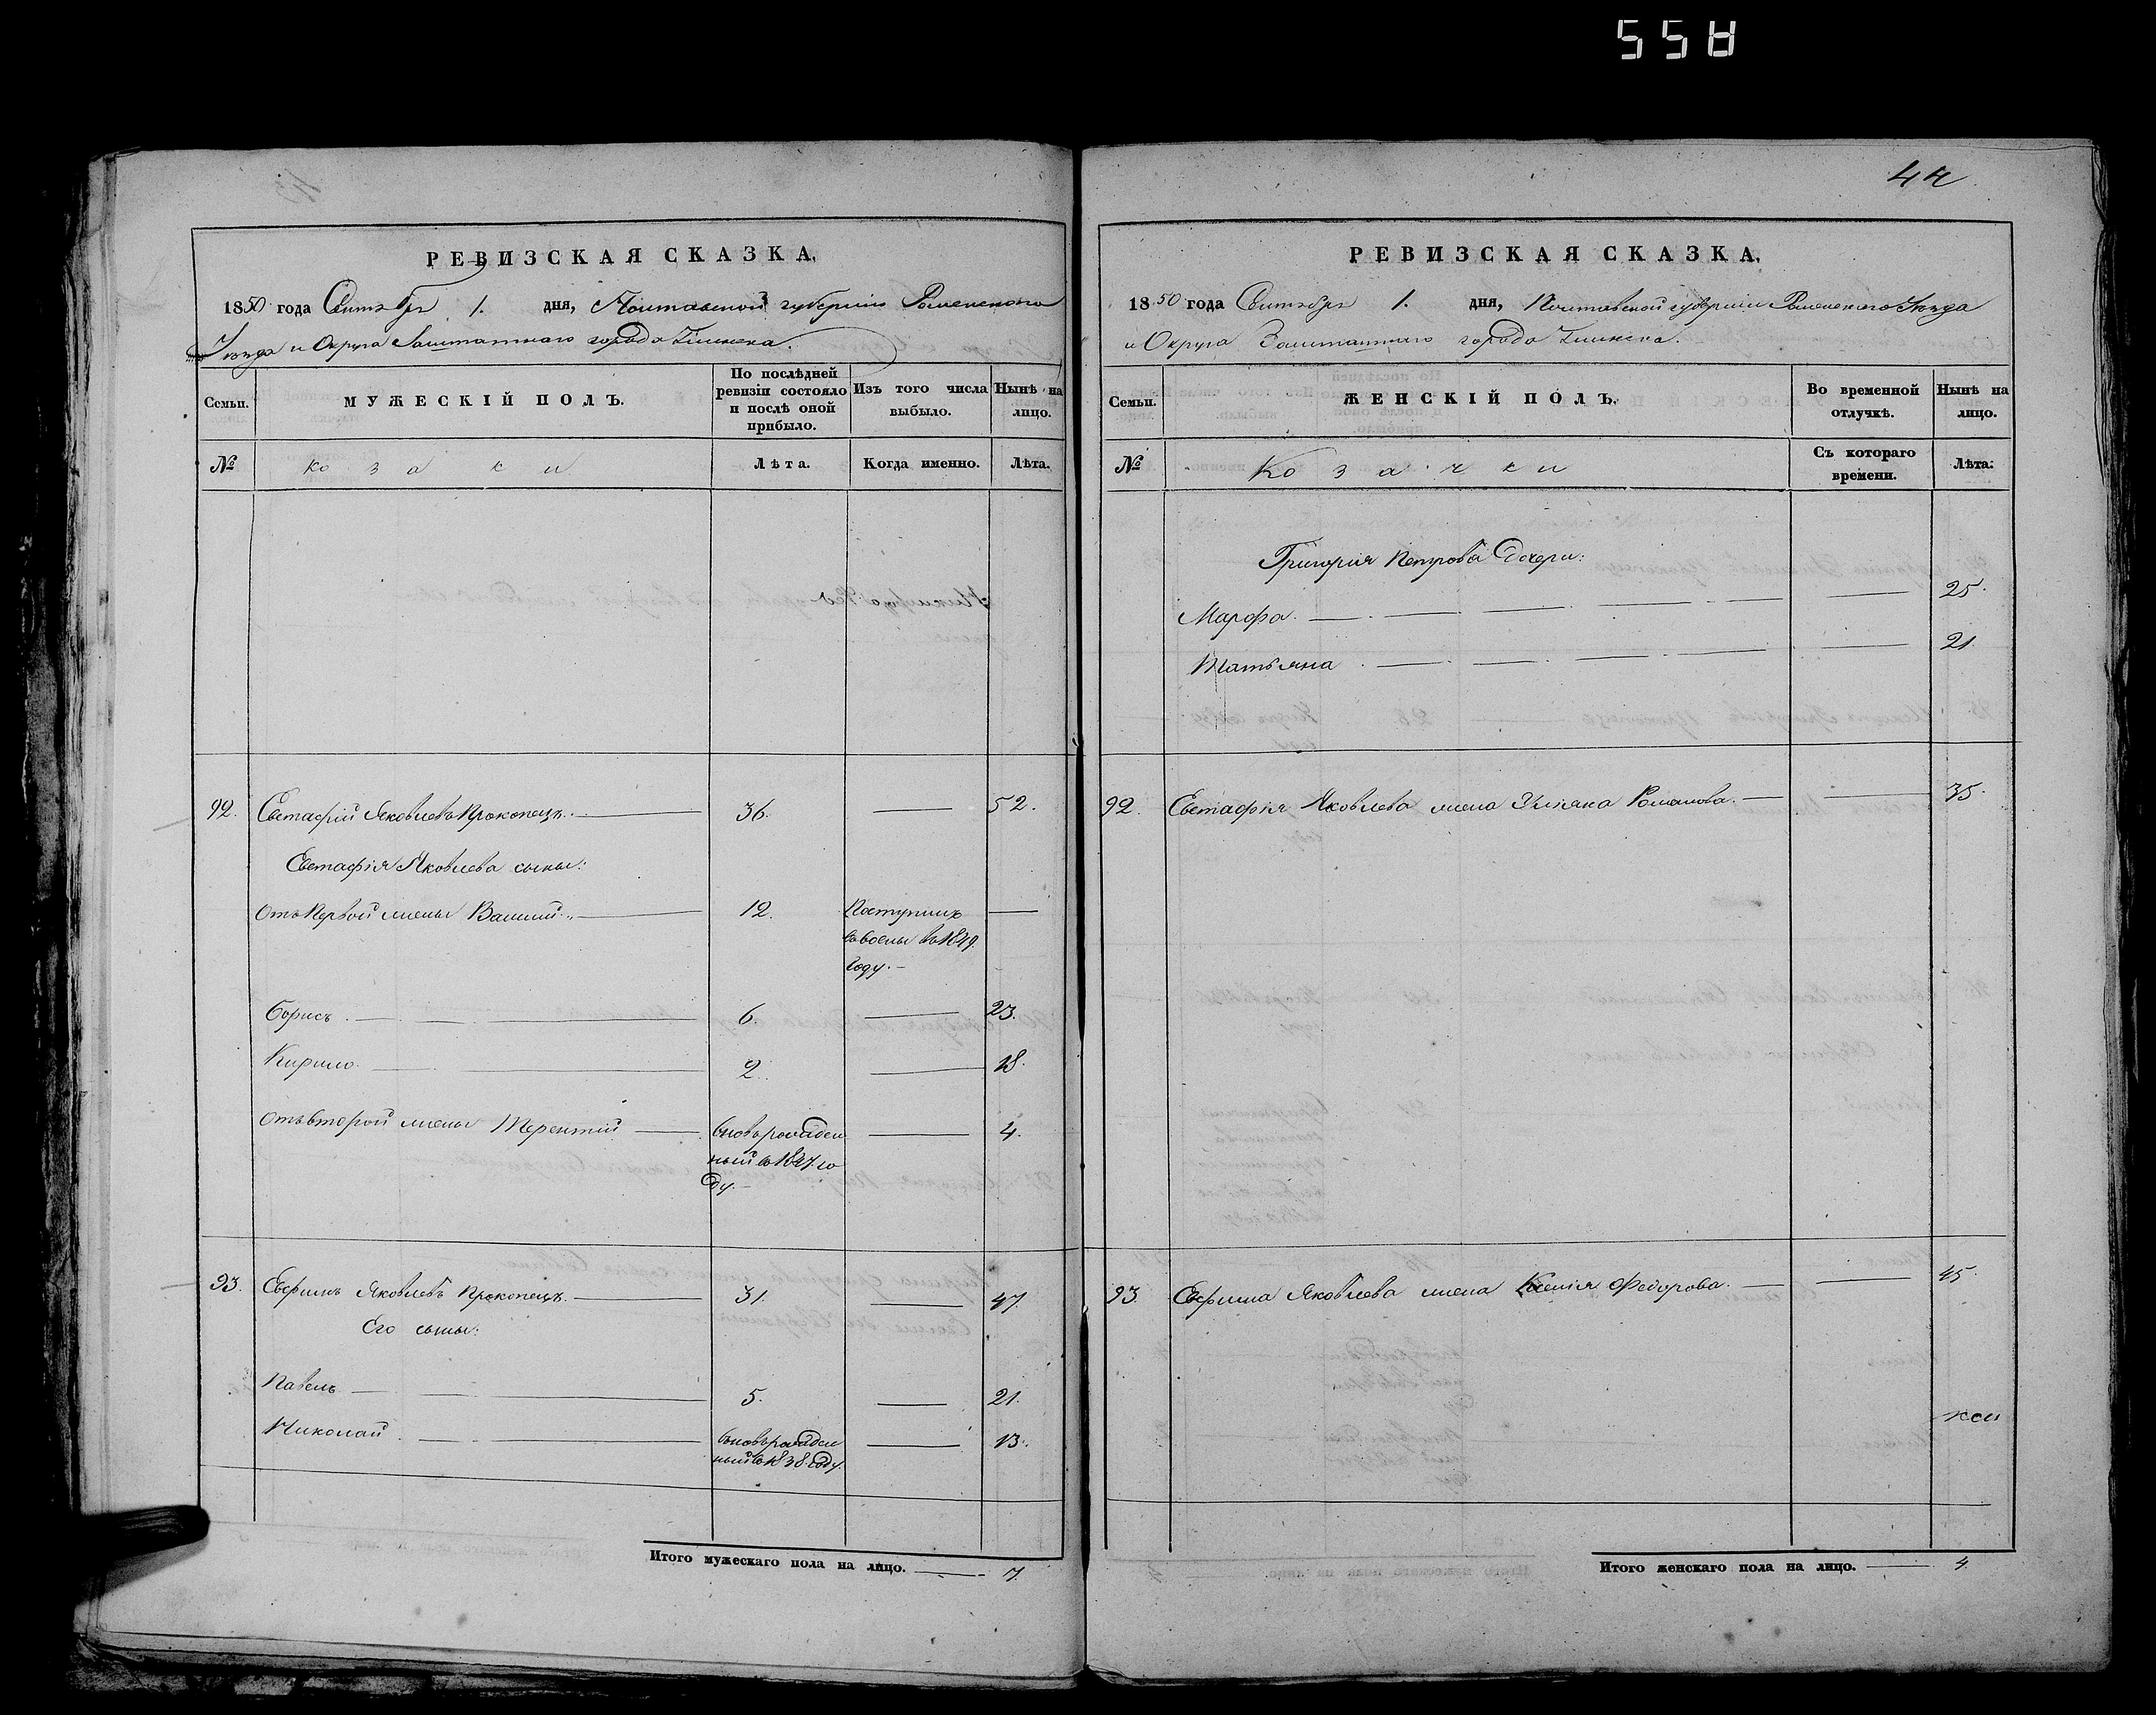 558
44
РЕВИЗСКАЯ СКАЗКА,
1850 года Сентября 1. дня, Полтавской губернiи Роменского
Уѣзда и Округа Заштатнаго города Глинска.
Семьи. МУЖЕСКІЙ ПОЛЪ. По послѣдней ревизіи состояло и послѣ оной прибыло. Изъ того числа выбыло. Нынѣ на лицо.
№ козаки Лѣта. Когда именно. Лѣта.
92. Евстафій Яковлевъ Прокопецъ. 36. 52.
Евстафія Яковлева сыны:
Отъ Первой жены Василій 12. Поступилъ
въ 1849.
году.
Борисъ. 6. 23.
Кирило. 2. 18.
Отъ второй жены Терентій вновь рожден 4.
ный въ 1847 го
ду.
93. Ефимъ Яковлевъ Прокопецъ. 31. 47.
Его сыны:
Павелъ 5. 21.
Николай вновь рожден 13.
ный въ 1838. году.
Итого мужескаго пола на лицо. 7.
РЕВИЗСКАЯ СКАЗКА,
1850 года Сентября 1. дня, Полтавской губернiи Роменского Уѣзда
и Округа Заштатнаго города Глинска.
Семьи. ЖЕНСКІЙ ПОЛЪ. Во временной отлучкѣ. Нынѣ на лицо.
№ Козачки Съ котораго времени. Лѣта.
Григорія Петрова дочери:
Марфа. 25.
Татьяна. 21.
92. Евстафія Яковлева жена Ульяна Романова. 35.
93. Ефима Яковлева жена Ксенія Федорова. 45.
Итого женскаго пола на лицо. 4.